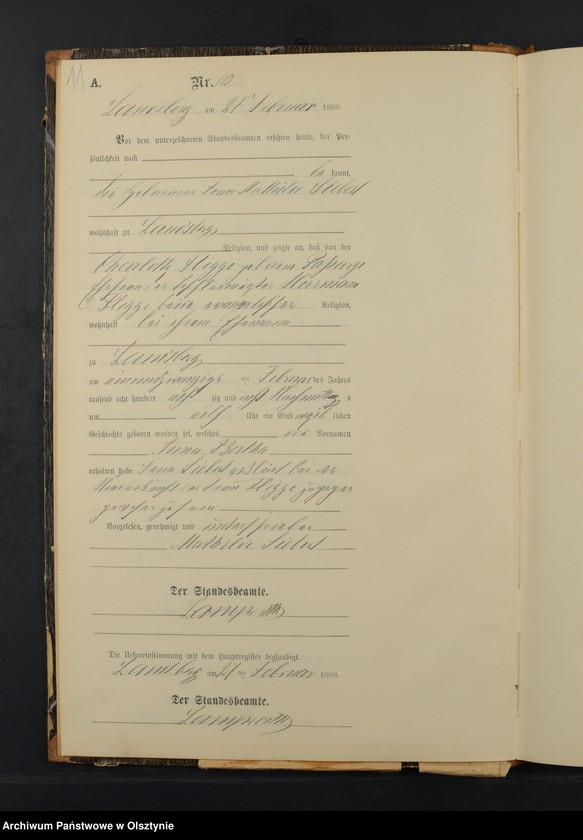 11
A. Nr. 10
Landsberg am 27 Februar 1888.
Vor dem unterzeichneten Standesbeamten erschien heute, der Per-
sönlichkeit nach
be kannt,
die Hebamme Frau Mathilde Siebert
wohnhaft zu Landsberg
Religion, und zeigte an, daß von der
Plegge geborene
Ehefrau des Herrmann
Plegge beide evangelischer Religion,
wohnhaft bei ihrem Ehemann
zu Landsberg
am einundzwanzigsten Februar des Jahres
tausend acht hundert acht zig und acht Nachmittags
um elf Uhr ein Kind weib lichen
Geschlechts geboren worden sei, welches die Vornamen
Anna Bertha
erhalten habe Frau Siebert bei der
Niederkunft der Frau Plegge zugegen
gewesen zu sein
Vorgelesen, genehmigt und unterschrieben
Mathilde Siebert
Der Standesbeamte.
Die Uebereinstimmung mit dem Hauptregister beglaubigt.
Landsberg am 27 ten Februar 1888.
Der Standesbeamte.
Archiwum Państwowe w Olsztynie